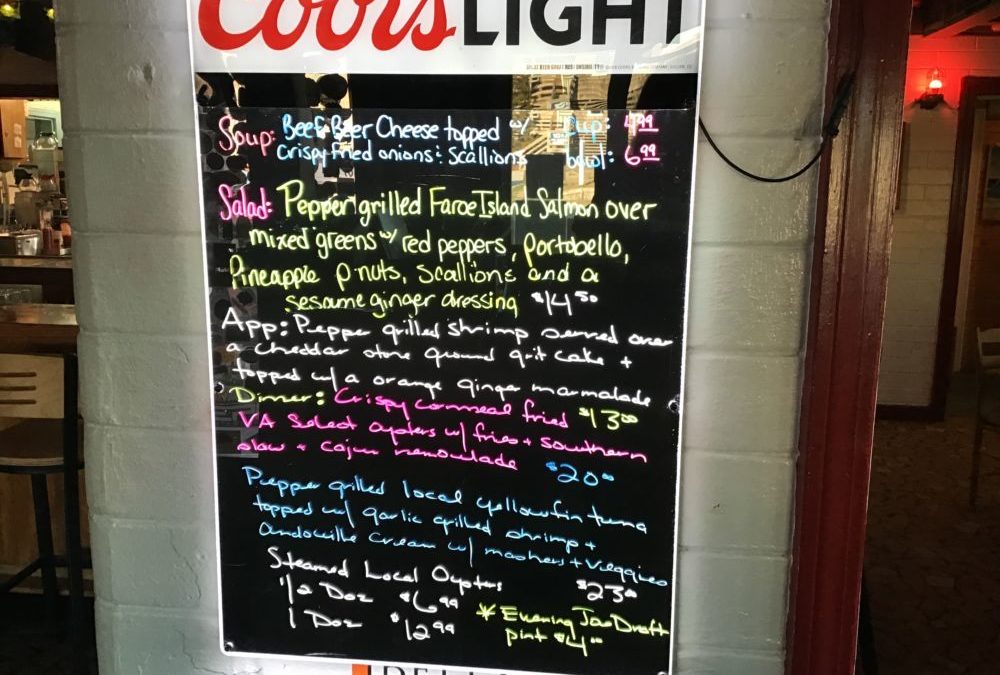 Coors LIGHT
Soup: Beef Beer Cheese topped w/ Cup: 4.99
Crispy fried onions & Scallions bowl: 6.99
Salad: Pepper grilled Faroe Island Salmon over
mixed greens w/ red peppers, portobello,
Pineapple p-nuts, scallions and a
sesame ginger dressing $14.50
App: Pepper grilled shrimp served over
a cheddar stone ground grit cake +
topped w/ a orange ginger marmalade
Dinner: Crispy cornmeal fried $13.00
VA Select Oysters w/ fries + southern
slaw + cajun remoulade $20.00
Pepper grilled local yellowfin tuna
topped w/ garlic grilled shrimp +
andouille cream w/ mashers + veggies
Steamed Local Oysters $23.00
1/2 Doz $6.99 * Evening Joe Draft
1 Doz $12.99 pint $4.00